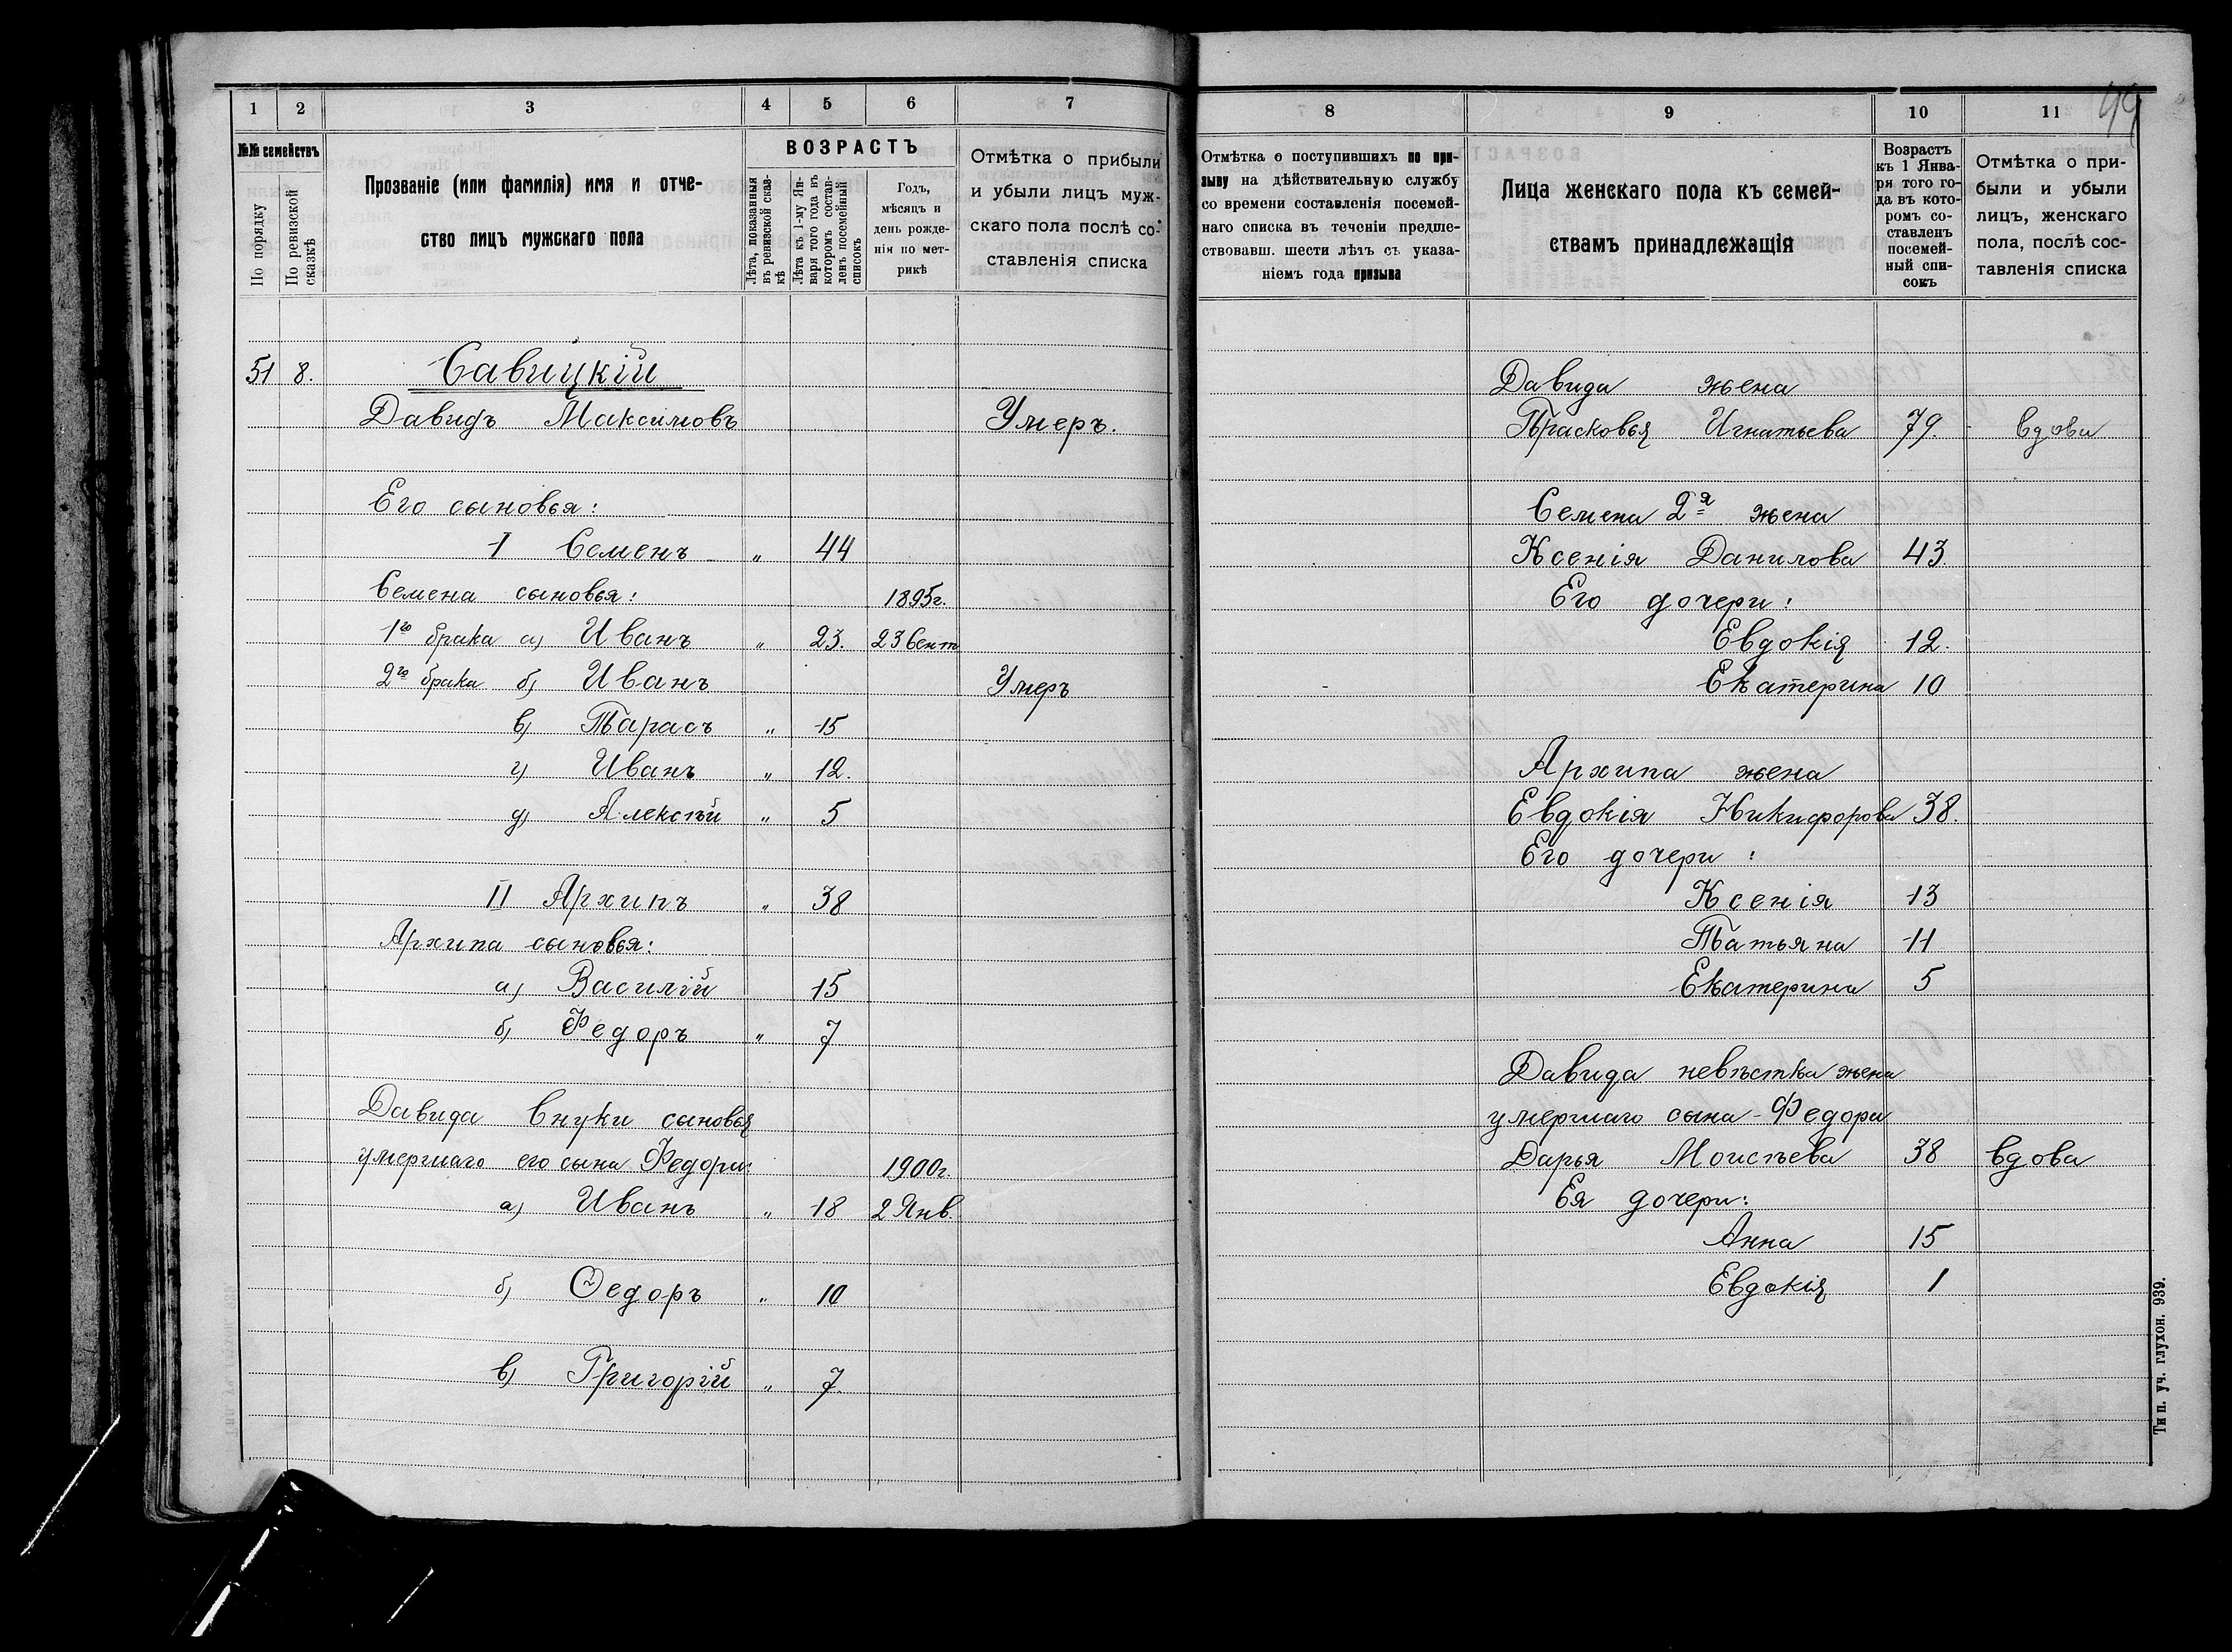 1 2 3 4 5 6 7
№№ семействъ
По порядку
По ревизской сказкѣ
Прозваніе (или фамилія) имя и отче-
ство лицъ мужскаго пола
ВОЗРАСТЪ
Лѣта, показанныя
въ ревизской сказ-
кѣ
Лѣта къ 1-му Ян-
варя того года въ
которомъ состав-
ленъ посемейный
списокъ
Годъ,
мѣсяцъ и
день рожде-
нія по мет-
рикѣ
Отмѣтка о прибыли
и убыли лицъ муж-
скаго пола послѣ со-
ставленія списка
51 8. Савицкій
Давидъ Максимовъ Умеръ.
Его сыновья:
I Семенъ " 44
Семена сыновья: 1895г.
1го брака а) Иванъ " 23. 23 Сент
2го брака б) Иванъ Умеръ
в) Тарасъ " 15
г) Иванъ " 12.
д) Алексѣй " 5
II Архипъ " 38
Архипа сыновья:
а) Василій 15
б) Федоръ " 7
Давида внуки сыновья
умершаго его сына Федора: 1900г
а) Иванъ " 18 2 Янв.
б) Ѳедоръ " 10
в) Григорій " 7.
8 9 10 11
Отмѣтка о поступившихъ по при-
зыву на дѣйствительную службу
со времени составленія посемей-
наго списка въ теченіи предше-
ствовавш. шести лѣтъ съ указа-
ніемъ года призыва
Лица женскаго пола къ семей-
ствамъ принадлежащія
Возрастъ
къ 1 Янва-
ря того го-
да въ кото-
ромъ со-
ставленъ
посемей-
ный спи-
сокъ
Отмѣтка о при-
были и убыли
лицъ, женскаго
пола, послѣ сос-
тавленія списка
Давида жена
Прасковья Игнатьева 79. вдова
Семена 2я жена
Ксенія Данилова 43.
Его дочери:
Евдокія 12.
Екатерина 10
Архипа жена
Евдокія Никифорова 38.
Его дочери:
Ксенія 13
Татьяна 11
Екатерина 5
Давида невѣстка жена
умершаго сына - Федора
Дарья Моисѣева 38 вдова
Ея дочери:
Анна 15
Евдокія 1
Тип. уч. глухон. 939.